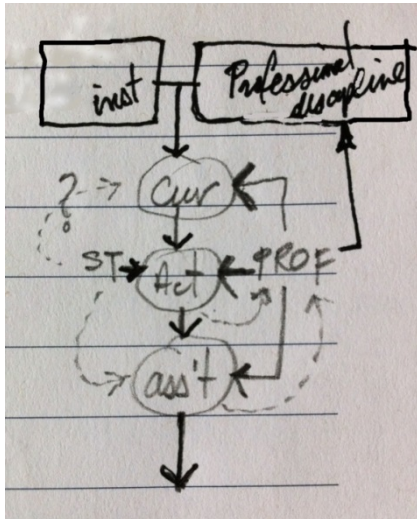 inst
Professional
discipline
?
Curr
ST
Act
PROF
ass't